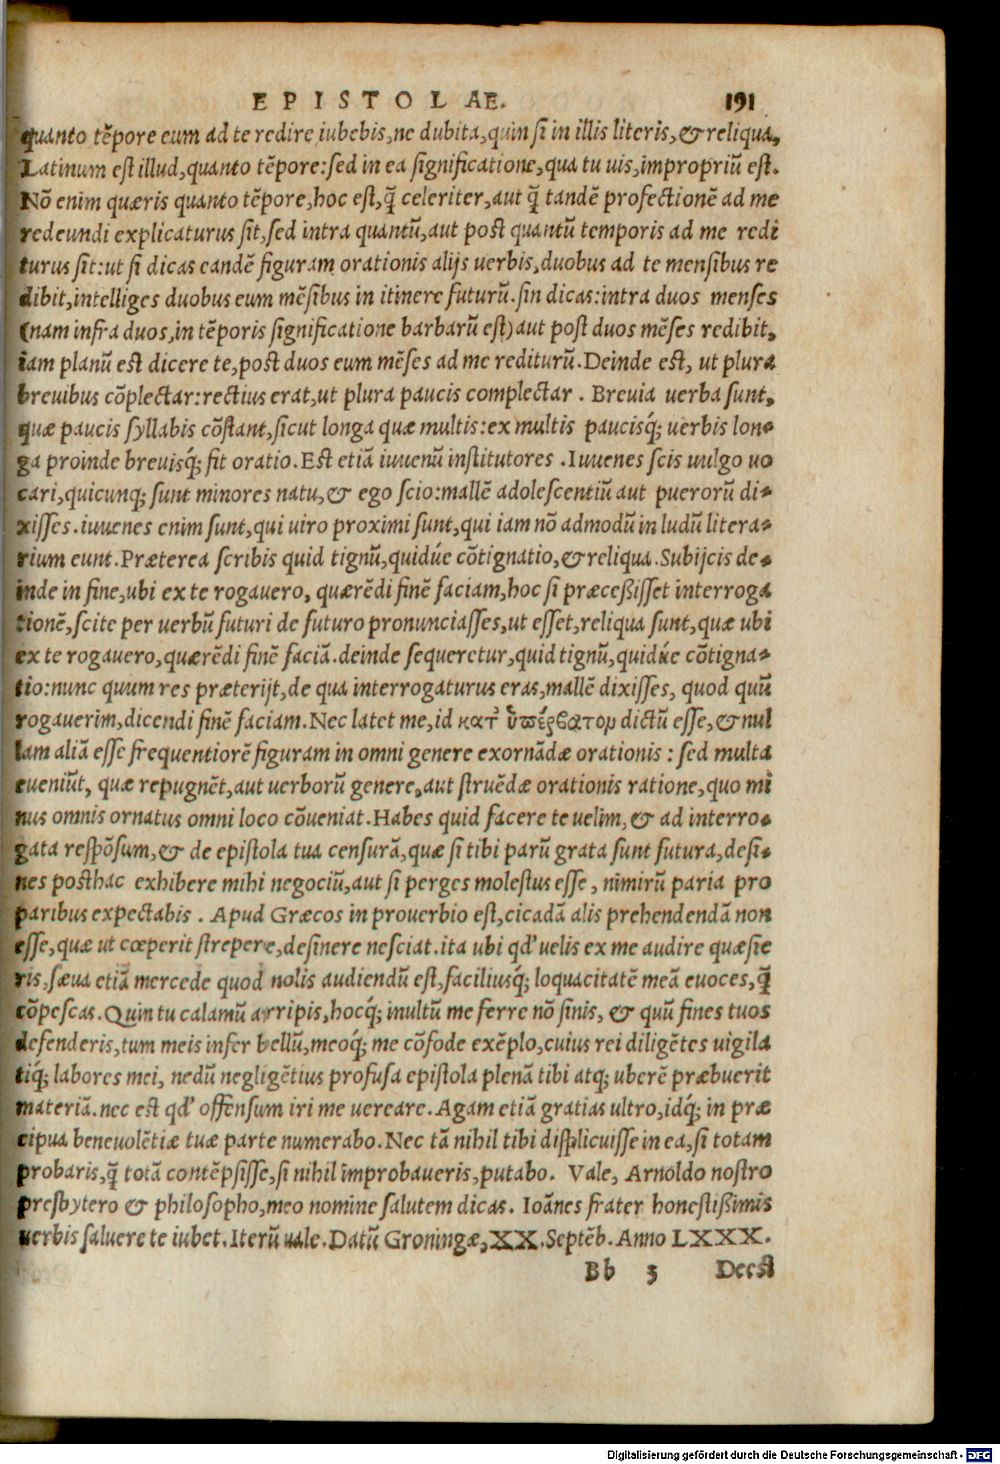 EPISTOLAE. 191
quanto tẽpore eum ad te redire iubebis, ne dubita, quin si in illis literis, & reliqua,
Latinum est illud, quanto tẽpore: sed in ea significatione, qua tu uis, impropriũ est.
Nõ enim quæris quanto tẽpore, hoc est, q̃ celeriter, aut q̃ tandẽ profectionẽ ad me
redeundi explicaturus sit, sed intra quantũ, aut post quantũ temporis ad me redi
turus sit: ut si dicas eandẽ figuram orationis alijs uerbis, duobus ad te mensibus re
dibit, intelliges duobus eum mẽsibus in itinere futurũ. sin dicas: intra duos menses
(nam infra duos, in tẽporis significatione barbarũ est) aut post duos mẽses redibit,
iam planũ est dicere te, post duos eum mẽses ad me rediturũ. Deinde est, ut plura
breuibus cõplectar: rectius erat, ut plura paucis complectar. Breuia uerba sunt,
quæ paucis syllabis cõstant, sicut longa quæ multis: ex multis paucisq́; uerbis lon-
ga proinde breuisq́; fit oratio. Est etiã iuuenũ institutores. Iuuenes scis uulgo uo
cari, quicunq; sunt minores natu, & ego scio: mallẽ adolescentiũ aut puerorũ di-
xisses. iuuenes enim sunt, qui uiro proximi sunt, qui iam nõ admodũ in ludũ litera-
rium eunt. Præterea scribis quid tignũ, quidúe cõtignatio, & reliqua. Subijcis de-
inde in fine, ubi ex te rogauero, quærẽdi finẽ faciam, hoc si præceßisset interroga
tionẽ, scite per uerbũ futuri de futuro pronunciasses, ut esset, reliqua sunt, quæ ubi
ex te rogauero, quærẽdi finẽ faciã. deinde sequeretur, quid tignũ, quidúe cõtigna-
tio: nunc quum res præterijt, de qua interrogaturus eras, mallẽ dixisses, quod quũ
rogauerim, dicendi finẽ faciam. Nec latet me, id κατ' ὑπέρβατον dictũ esse, & nul
lam aliã esse frequentiorẽ figuram in omni genere exornãdæ orationis: sed multa
eueniũt, quæ repugnẽt, aut uerborũ genere, aut struẽdæ orationis ratione, quo mi
nus omnis ornatus omni loco cõueniat. Habes quid facere te uelim, & ad interro-
gata respõsum, & de epistola tua censurã, quæ si tibi parũ grata sunt futura, desi-
nes posthac exhibere mihi negociũ, aut si perges molestus esse, nimirũ paria pro
paribus expectabis. Apud Græcos in prouerbio est, cicadã alis prehendendã non
esse, quæ ut cœperit strepere, desinere nesciat. ita ubi qd' uelis ex me audire quæsie
ris, sæua etiã mercede quod nolis audiendũ est, faciliusq́; loquacitatẽ meã euoces, q̃
cõpescas. Quin tu calamũ arripis, hocq́; inultũ me ferre nõ sinis, & quũ fines tuos
defenderis, tum meis infer bellũ, meoq́; me cõfode exẽplo, cuius rei diligẽtes uigila
tiq́; labores mei, nedũ negligẽtius profusa epistola plenã tibi atq; uberẽ præbuerit
materiã. nec est qd' offensum iri me uereare. Agam etiã gratias ultro, idq́; in præ
cipua beneuolẽtiæ tuæ parte numerabo. Nec tã nihil tibi displicuisse in ea, si totam
probaris, q̃ totã contẽpsisse, si nihil improbaueris, putabo. Vale, Arnoldo nostro
presbytero & philosopho, meo nomine salutem dicas. Ioãnes frater honestißimis
uerbis saluere te iubet. Iterũ uale. Datũ Groningæ, XX. Septẽb. Anno LXXX.
Bb 3 Deest
Digitalisierung gefördert durch die Deutsche Forschungsgemeinschaft - DFG